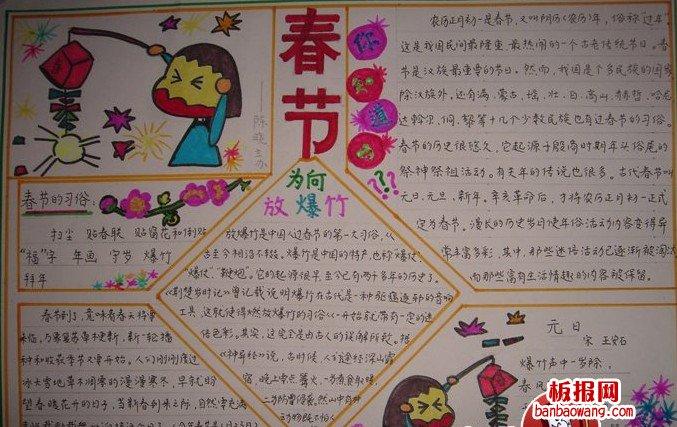 春节
陈晓
你知道
???
农历正月初一是春节,又叫阴历(农历)年,俗称"过年"
这是我国民间最隆重、最热闹的一个古老传统节日。春
节是汉族最重要的节日。然而,我国是个多民族的国家
除汉族外,还有满、蒙古、瑶、壮、白、高山、赫哲、哈尼
达斡尔、侗、黎等十几个少数民族也有过春节的习俗。
春节的历史很悠久,它起源于殷商时期年头俗尾的
祭神祭祖活动。有关年的传说也很多。古代春节叫
元日、元旦、新年。辛亥革命后,才将农历正月初一正式
定为春节。漫长的历史岁月使年俗活动内容变得异
常丰富多彩,其中,那些迷信活动已逐渐被淘汰
而那些富有生活情趣的内容被保留。
春节的习俗:
扫尘 贴春联 贴窗花和倒贴
"福"字 年画 守岁 爆竹
拜年
为何
放爆竹
放爆竹是中国人过春节的第一大习俗,
古至今利治不衰。爆竹是中国的特产,也称"爆仗"
"爆仗"、"鞭炮"。它的起源很早,至今已有两千多年的历史了。
《荆楚岁时记》曾记载说明爆竹在古代是一种驱瘟逐邪的音响
工具,这就使得燃放爆竹的习俗一开始就带有一定的迷
信色彩。其实,这完全是由古人的误解所致。据
《神异经》说,古时候,人们途经深山露
宿,晚上要点篝火,一为煮食取暖,
二为防野兽侵袭。然山中有种
动物既不怕人
春节到了,意味着春天将要
来临,万象复苏草木更新,新一轮播
种和收获季节又要开始。人们刚刚度过
冰天雪地草木凋零的漫漫寒冬,早就盼
望春暖花开的日子,当新春到来之际,自然要充满
元日
宋 王安石
爆竹声中一岁除,
春风
板报网
banbaowang.com